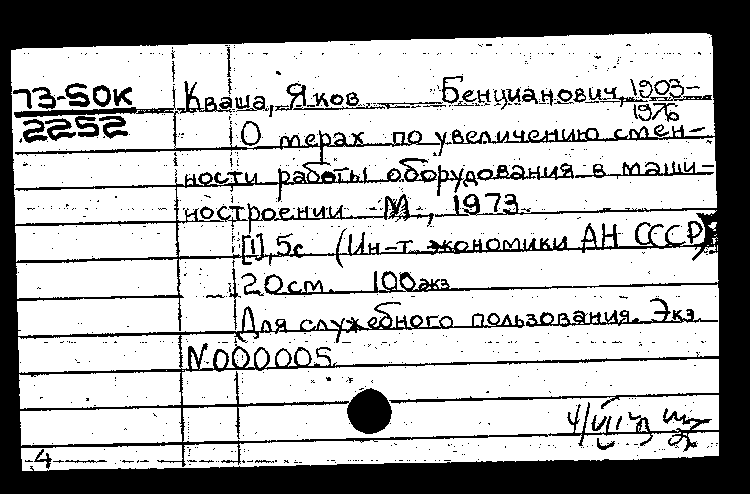 73-50K
2252
Кваша, Яков Бенцианович, 1903-
1976
О мерах по увеличению смен-
ности работы оборудования в маши-
ностроении М., 1973
[1], 5с (Ин-т экономики АН СССР)
20см. 100экз
Для служебного пользования. Экз.
N000005
4